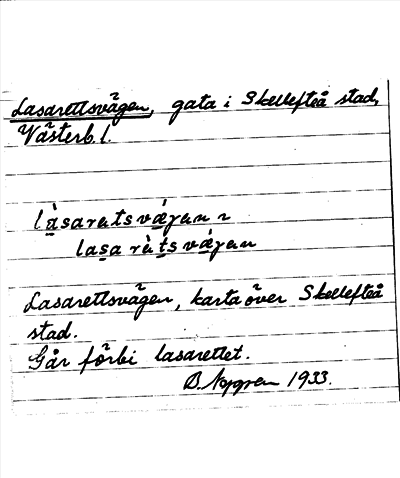 Lasarettsvägen, gata i Skellefteå stad,
Västerb. l.
làsaratsvǽgen ~
lasaràtsvǽgen
Lasarettsvägen, karta över Skellefteå
stad.
Går förbi lasarettet.
B. Nygren 1933.